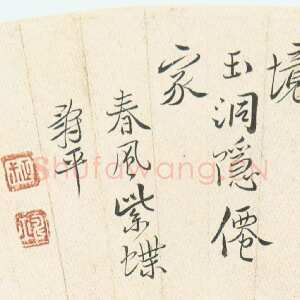 境
玉洞隱僊
家
春風紫蝶
平
Shufawang.CN